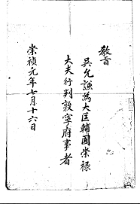 敎旨
吳允謙爲大匡輔國崇祿
大夫行判敦寧府事者
崇禎元年七月十六日